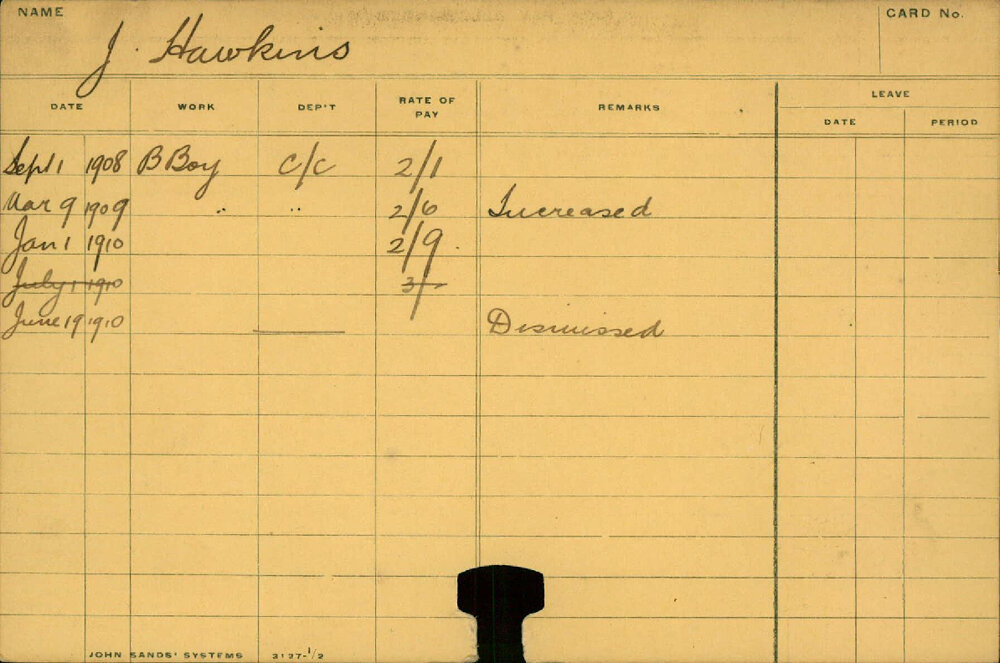 NAME
CARD No.
J. Hawkins
DATE WORK DEP'T RATE OF PAY REMARKS LEAVE
DATE PERIOD
Sept 1 1908 B Boy C/C 2/1
Mar 9 1909 " " 2/6 Increased
Jan 1 1910 2/9
July 1 1910 3/-
June 19 1910 Dismissed
JOHN SANDS' SYSTEMS 3127-1/2